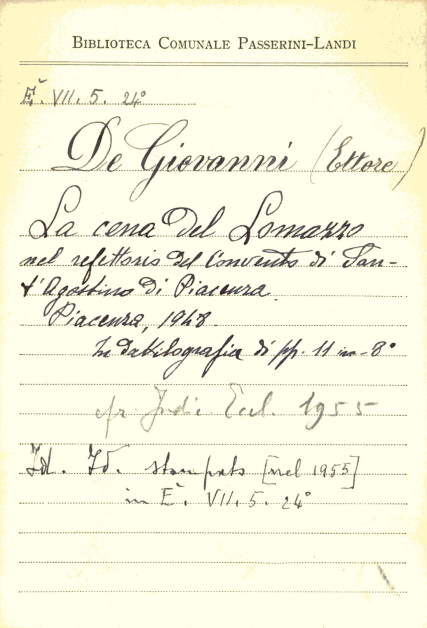 BIBLIOTECA COMUNALE PASSERINI-LANDI
Eˇ. VII. 5. 24°
De Giovanni (Ettore)
La cena del Lomazzo
nel refettorio del Convento di San-
t'Agostino di Piacenza.
Piacenza, 1948.
In dattilografia di pp. 11 in-8°
cfr Indic Eccl. 1955
Id. Id. stampato [nel 1955]
in Eˇ. VII. 5. 24°